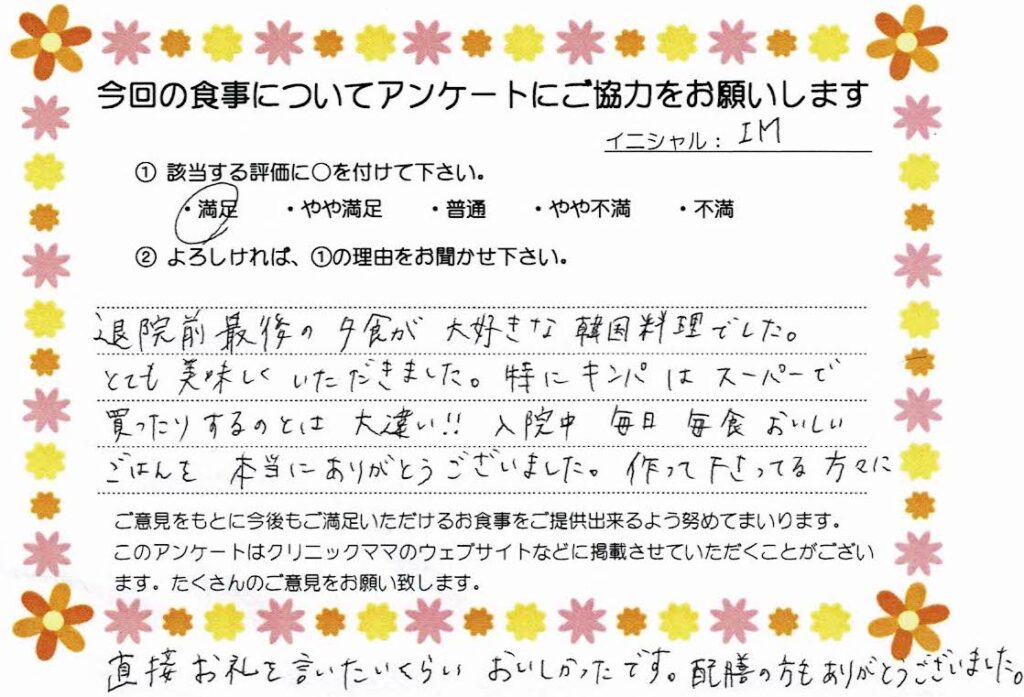 今回の食事についてアンケートにご協力をお願いします
イニシャル： IM
① 該当する評価に○を付けて下さい。
・満足 ・やや満足 ・普通 ・やや不満 ・不満
② よろしければ、①の理由をお聞かせ下さい。
退院前最後の夕食が 大好きな韓国料理でした。
とても美味しくいただきました。特にキンパはスーパーで
買ったりするのとは 大違い!! 入院中 毎日 毎食 おいしい
ごはんを 本当にありがとうございました。作って下さってる方々に
ご意見をもとに今後もご満足いただけるお食事をご提供出来るよう努めてまいります。
このアンケートはクリニックママのウェブサイトなどに掲載させていただくことがござい
ます。たくさんのご意見をお願い致します。
直接お礼を言いたいくらい おいしかったです。配膳の方もありがとうございました。